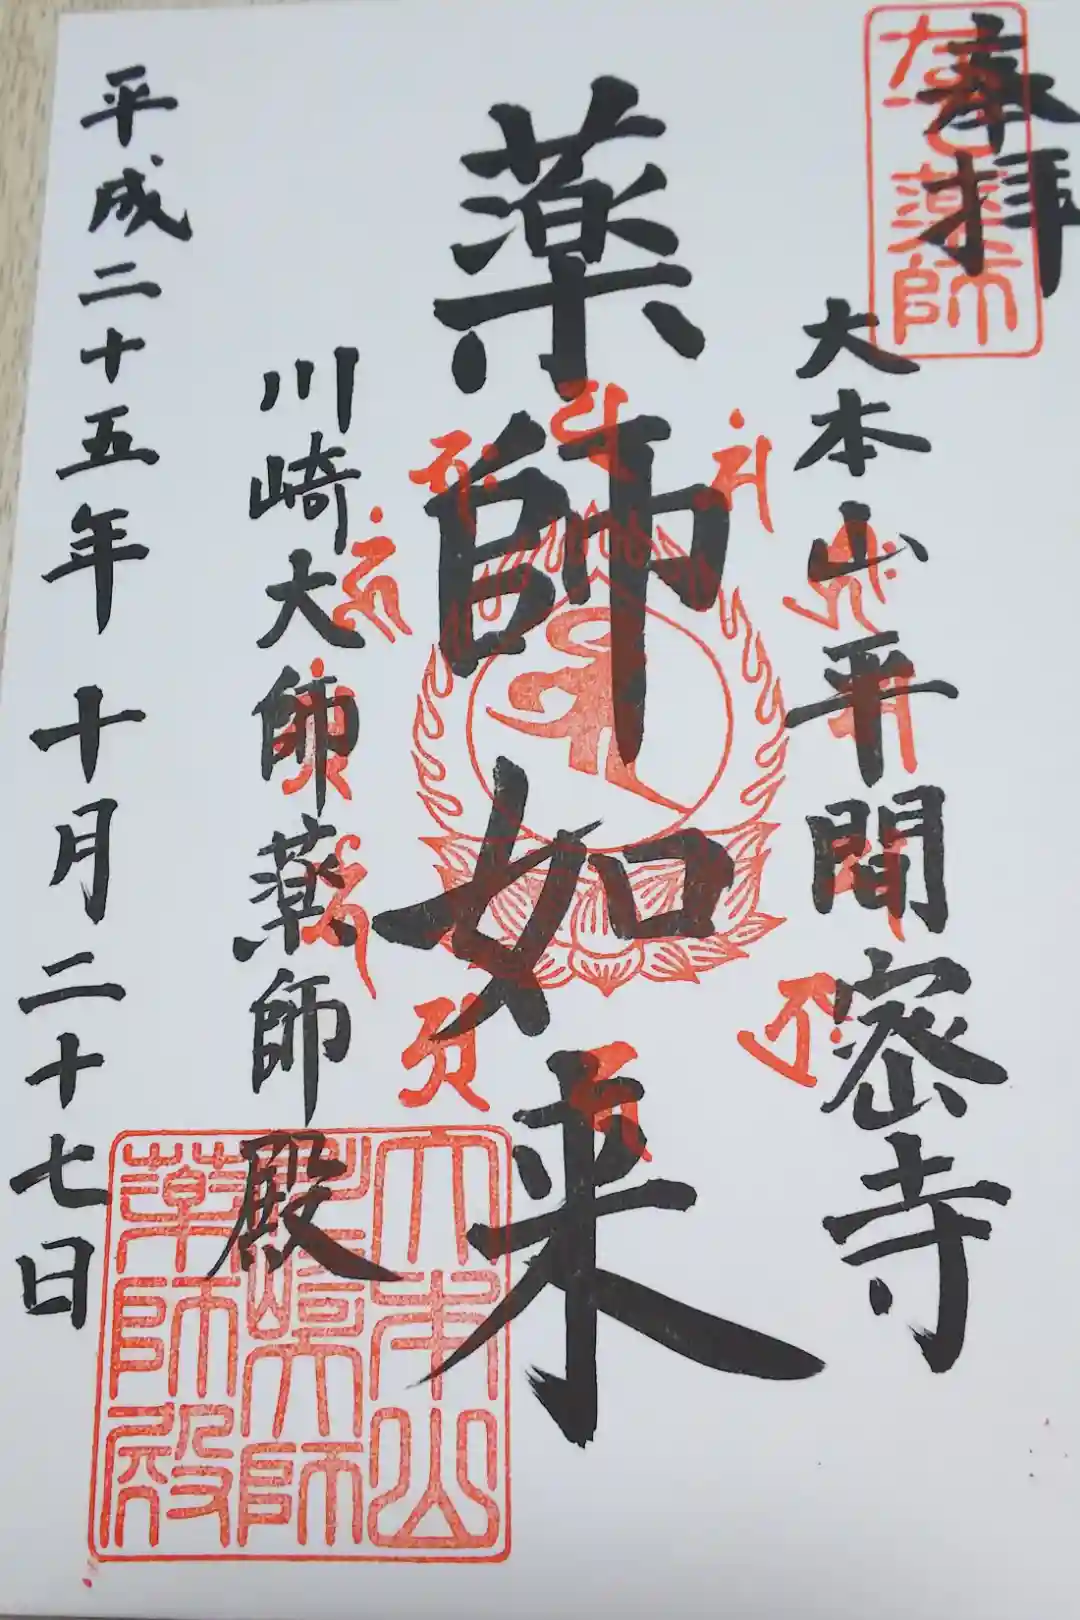 奉拝
なで薬師
大本山平間密寺
薬師如来
川崎大師薬師殿
大本山
川崎大師
薬師殿
平成二十五年十月二十七日